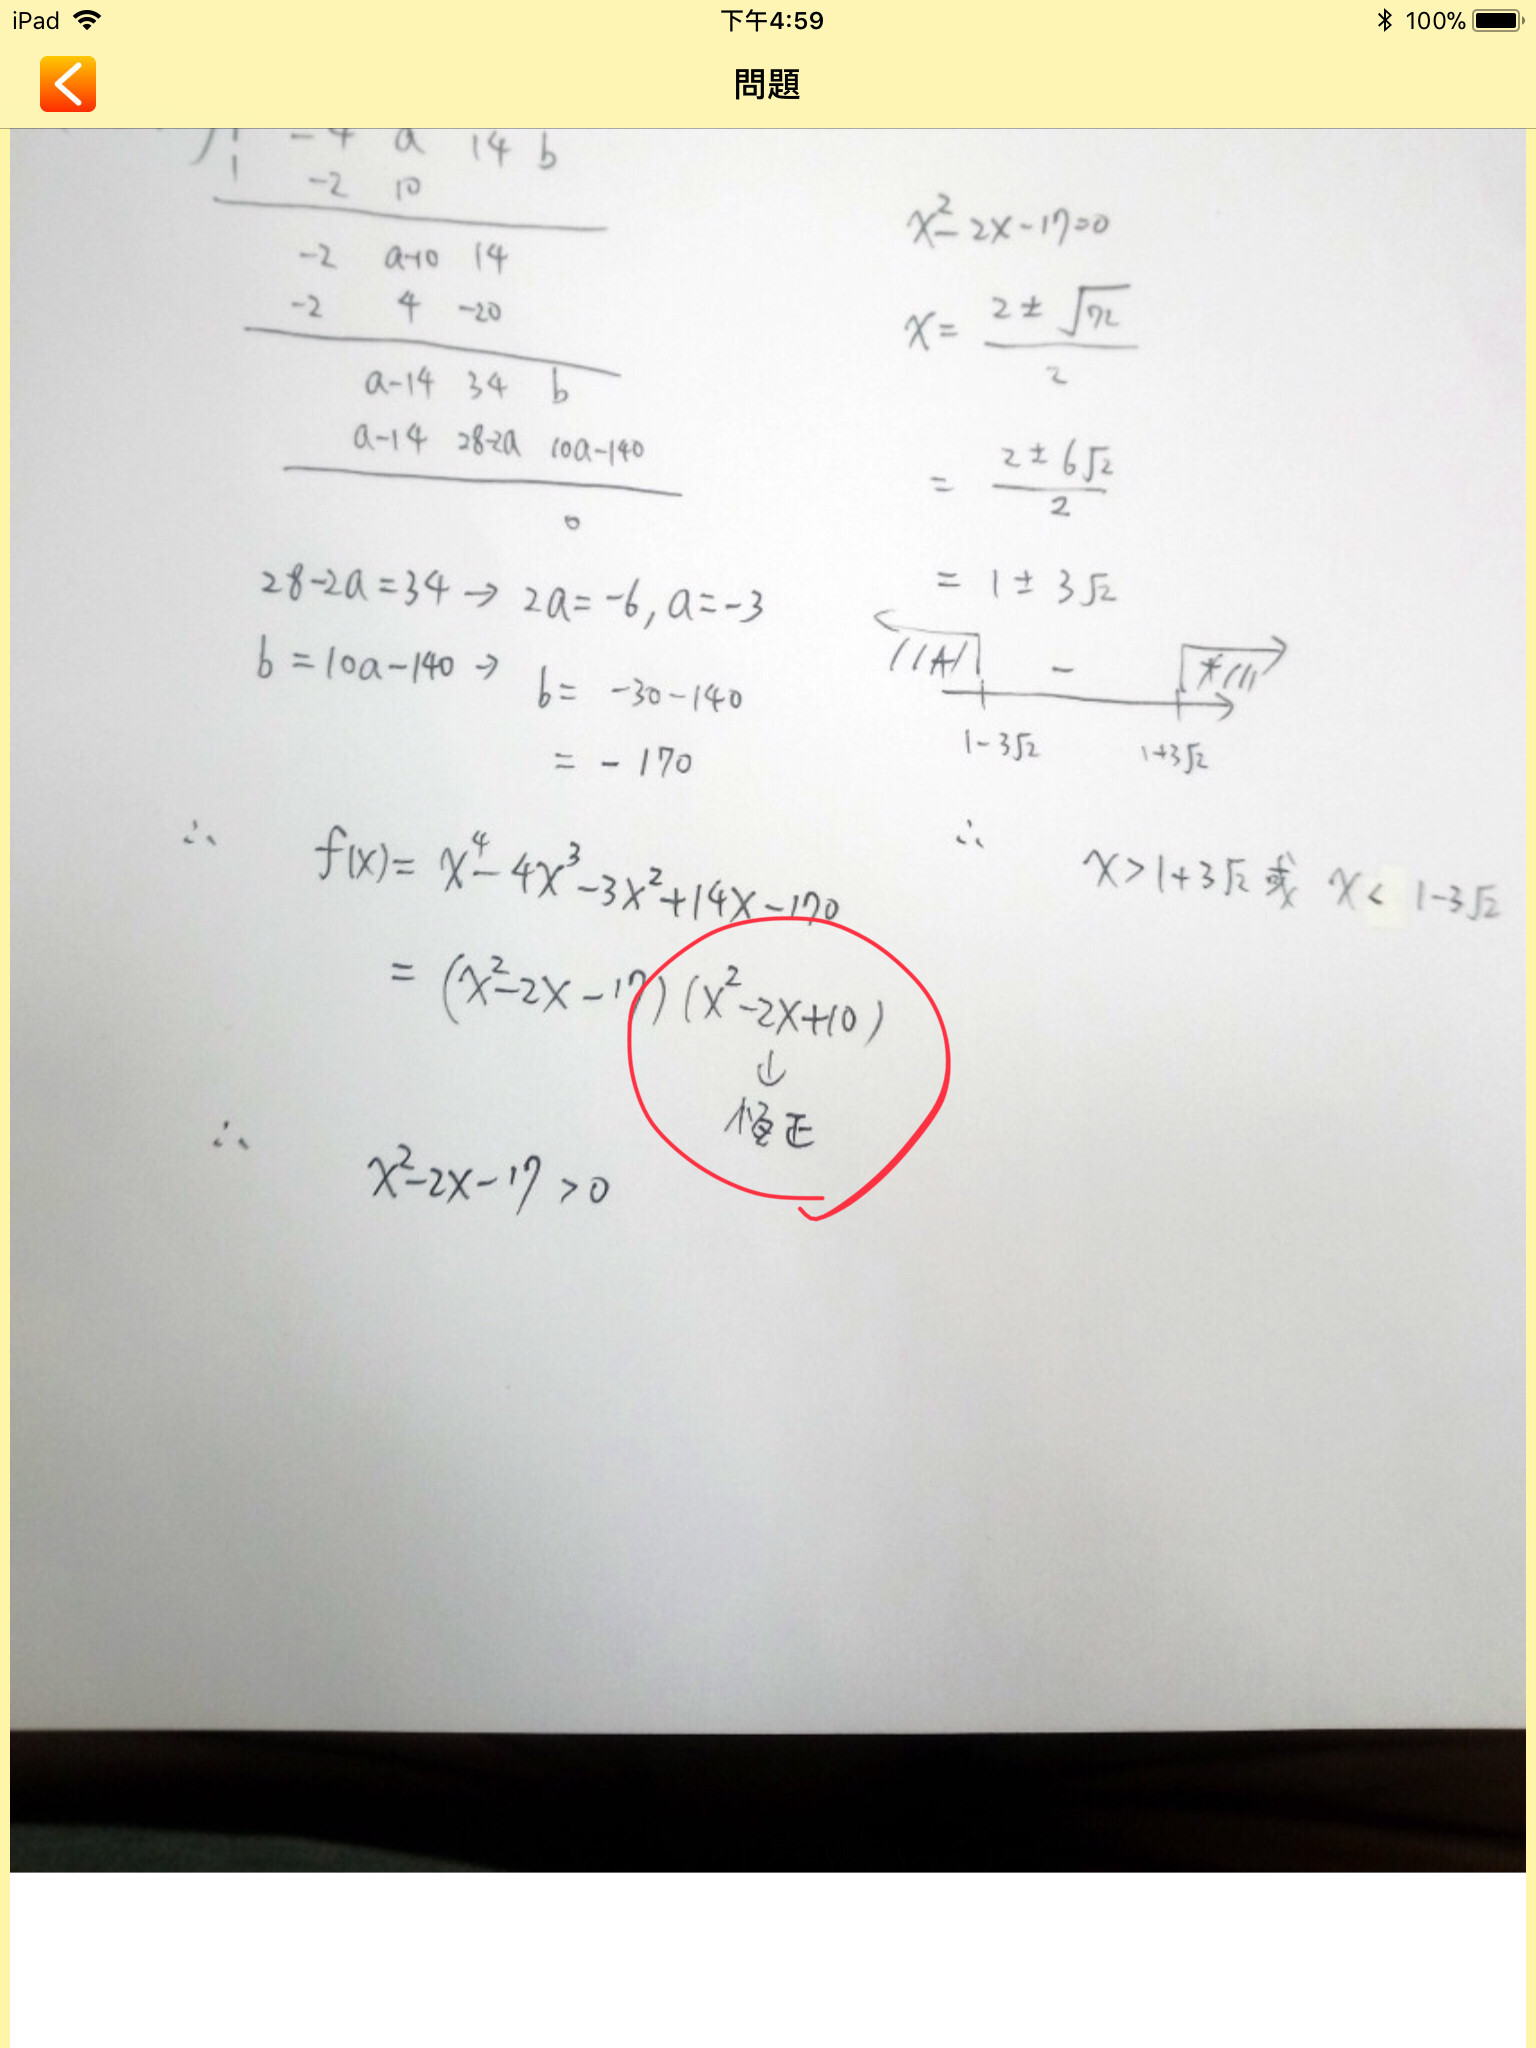 iPad 下午4:59 100%
問題
1 -4 a 14 b
1 -2 10
-2 a-10 14
-2 4 -20
a-14 34 b
a-14 28-2a 10a-140
0
28-2a=34→ 2a=-6, a=-3
b=10a-140→ b= -30-140
= -170
∴ f(x)= x⁴-4x³-3x²+14x-170
= (x²-2x-17)(x²-2x+10)
↓
恆正
∴ x²-2x-17>0
x²-2x-17=0
x= 2±√72
2
= 2±6√2
2
= 1±3√2
+ - +
1-3√2 1+3√2
∴ x>1+3√2 或 x< 1-3√2